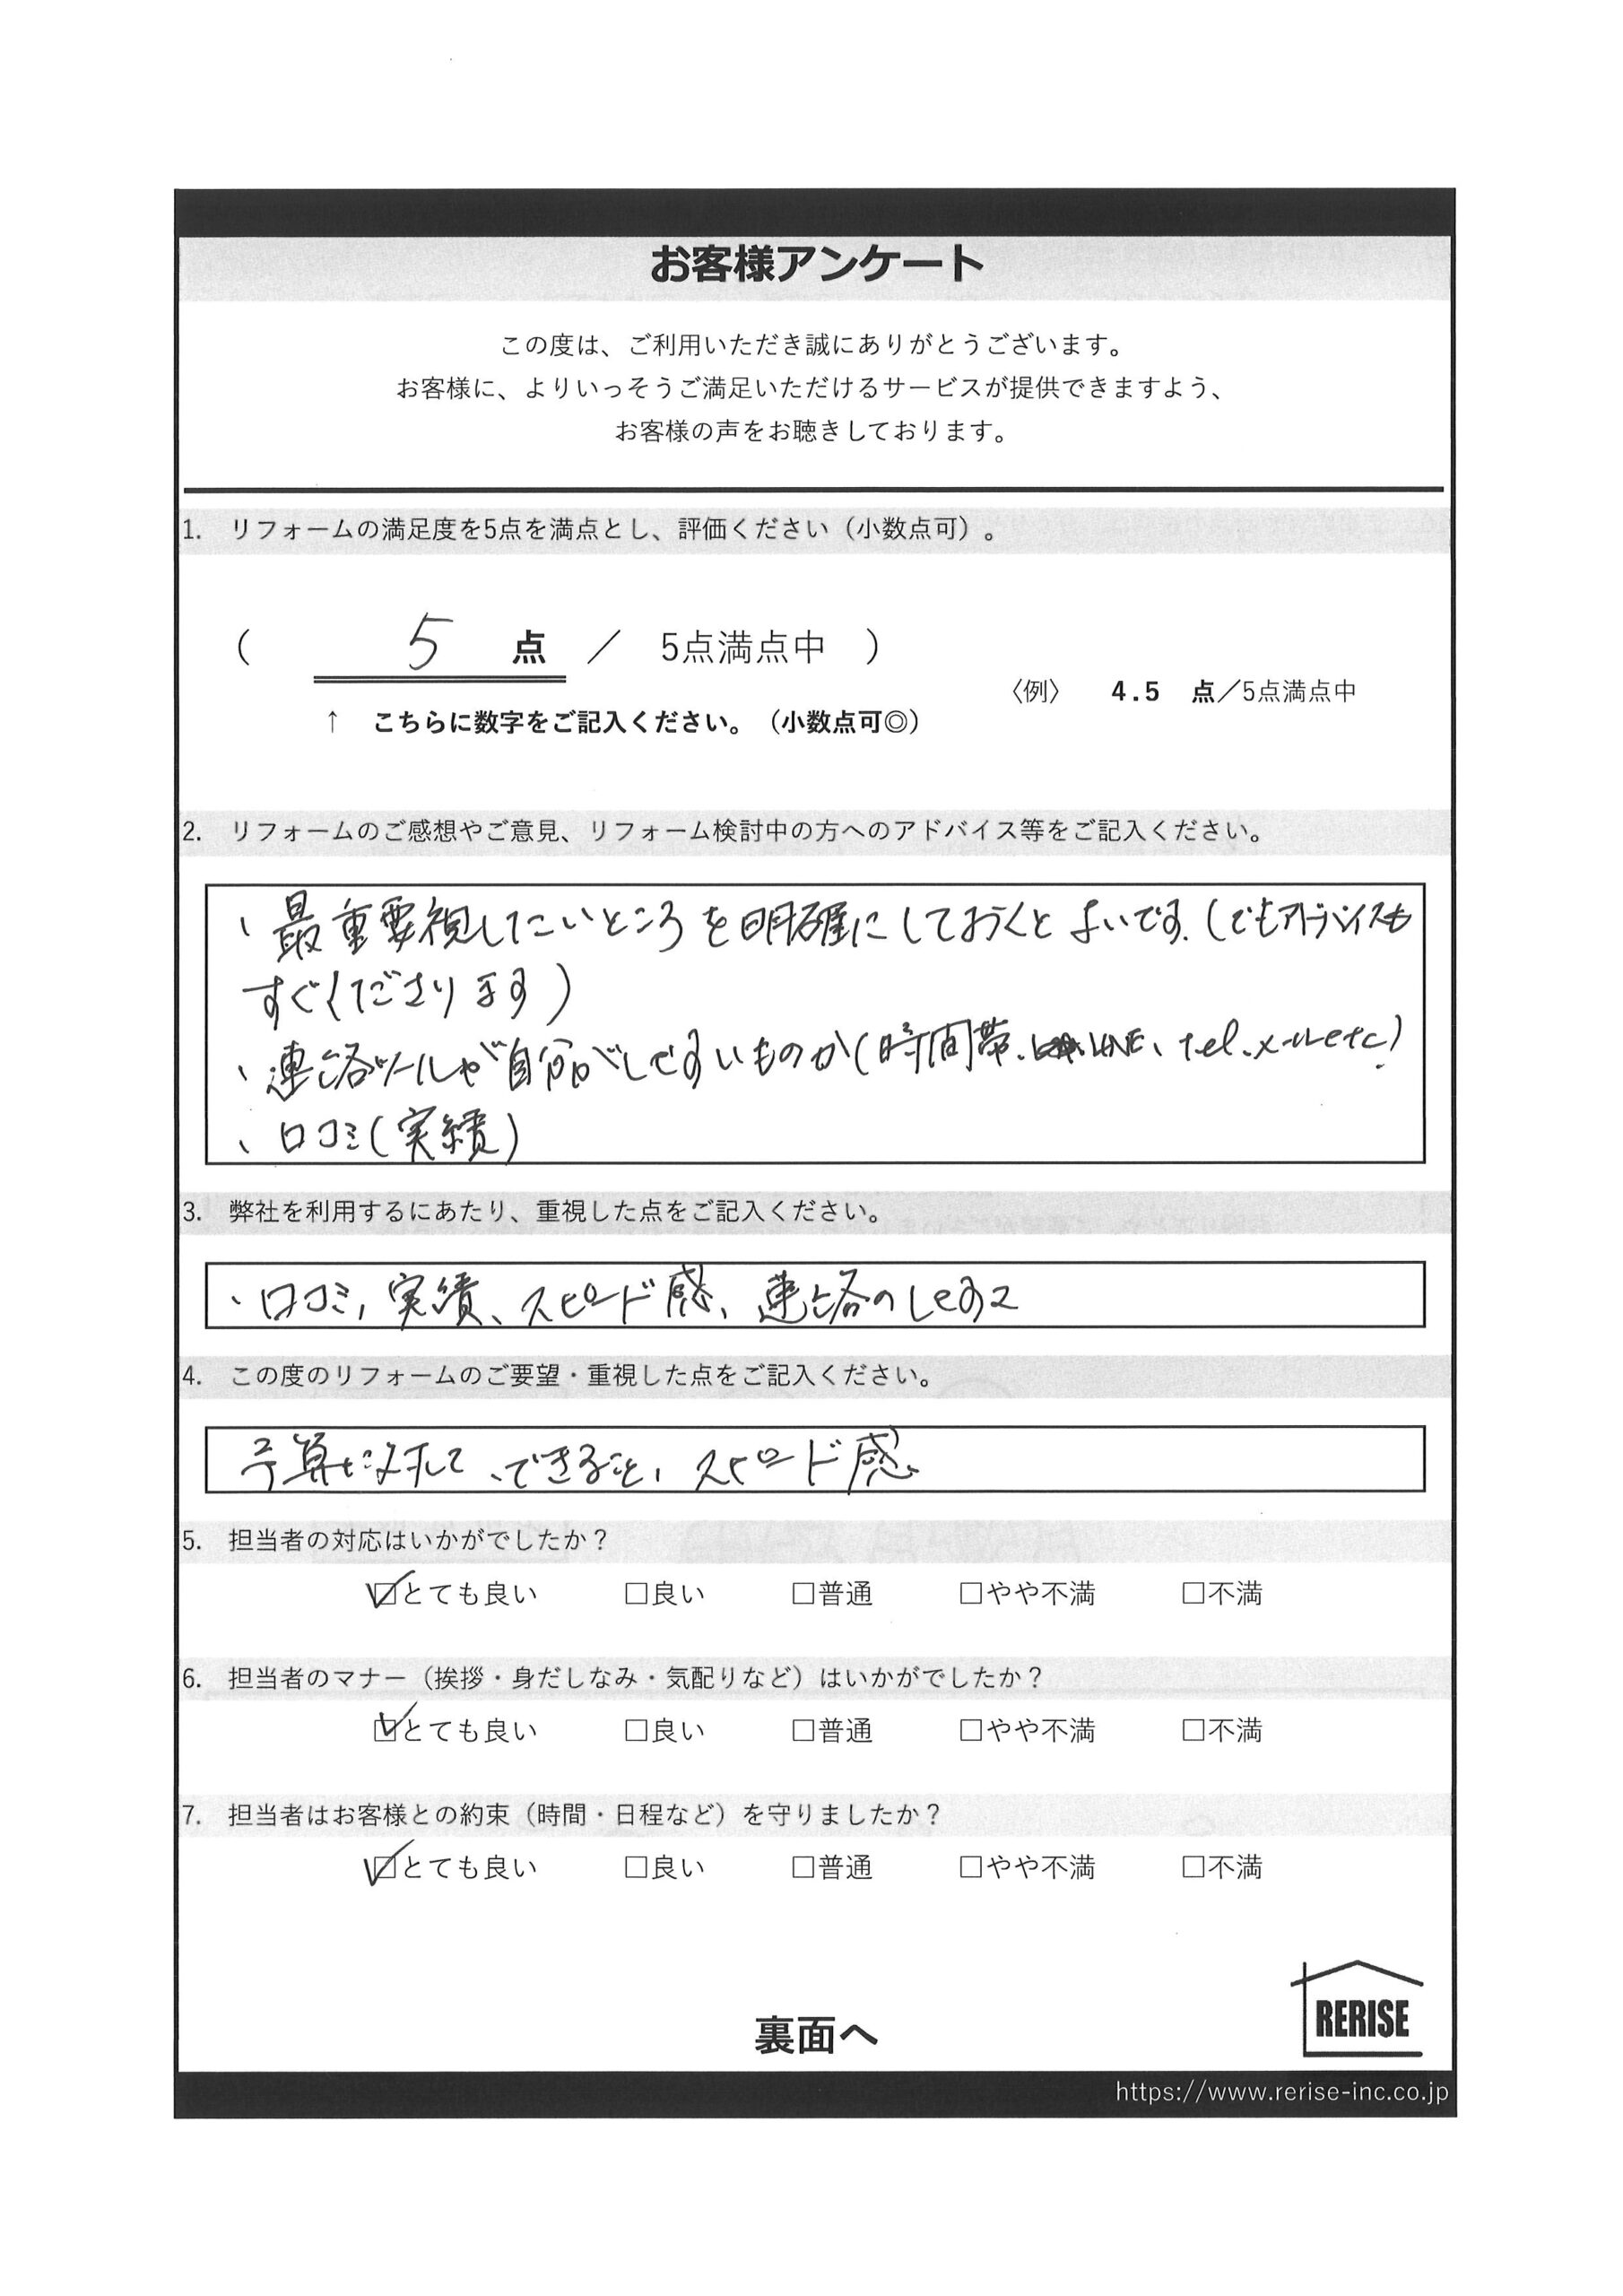 お客様アンケート
この度は、ご利用いただき誠にありがとうございます。
お客様に、よりいっそうご満足いただけるサービスが提供できますよう、
お客様の声をお聴きしております。
1. リフォームの満足度を5点を満点とし、評価ください（小数点可）。
（ 5 点 ／ 5点満点中 ）
〈例〉 4.5 点／5点満点中
↑ こちらに数字をご記入ください。（小数点可◎）
2. リフォームのご感想やご意見、リフォーム検討中の方へのアドバイス等をご記入ください。
、最重要視したいところを明確にしておくとよいです。(でもアドバイスも
すぐくださります)
、連絡ツールが自分がしやすいものか(時間帯、LINE、tel、メールetc)
、口コミ(実績)
3. 弊社を利用するにあたり、重視した点をご記入ください。
、口コミ、実績、スピード感、連絡のしやすさ
4. この度のリフォームのご要望・重視した点をご記入ください。
予算に対して、できること、スピード感
5. 担当者の対応はいかがでしたか？
☑とても良い □良い □普通 □やや不満 □不満
6. 担当者のマナー（挨拶・身だしなみ・気配りなど）はいかがでしたか？
☑とても良い □良い □普通 □やや不満 □不満
7. 担当者はお客様との約束（時間・日程など）を守りましたか？
☑とても良い □良い □普通 □やや不満 □不満
RERISE
裏面へ
https://www.rerise-inc.co.jp